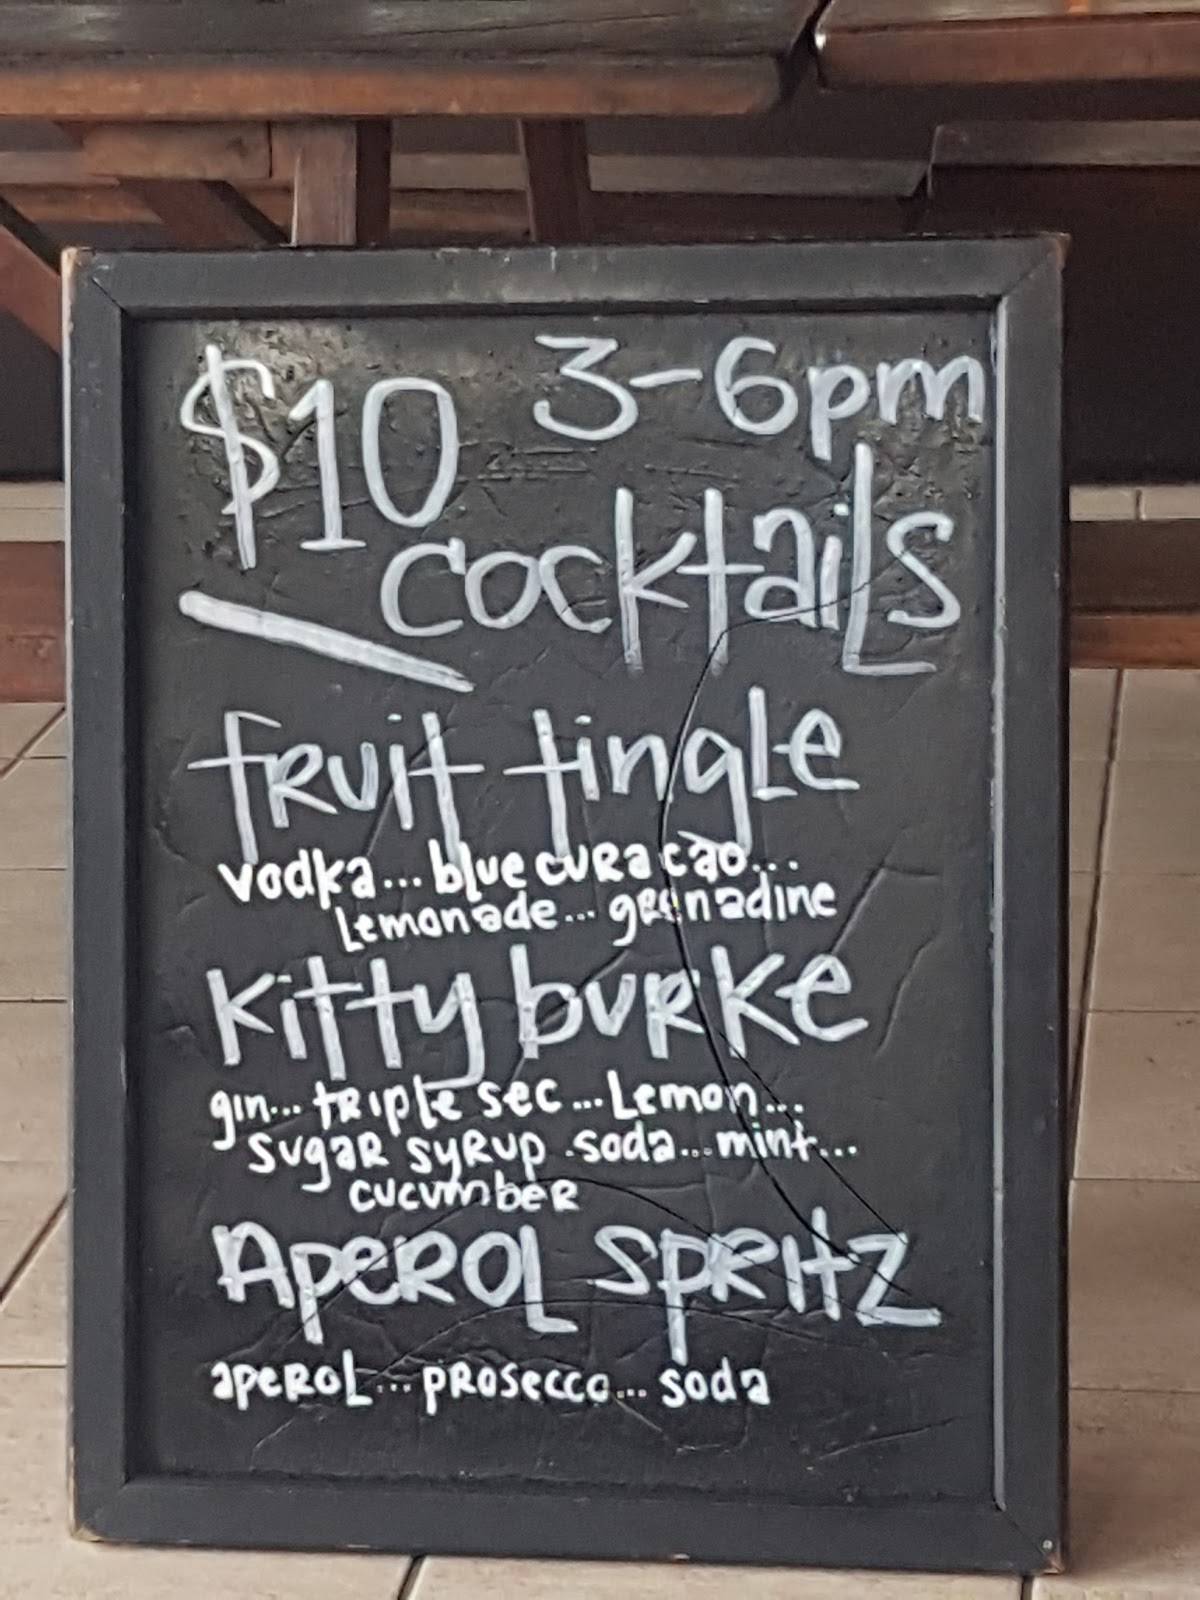 $10 3-6pm
cocktails
fruit tingle
vodka... blue curacao...
Lemonade... grenadine
kitty burke
gin... triple sec... Lemon...
sugar syrup .soda... mint...
cucumber
Aperol spritz
aperol... prosecco... soda